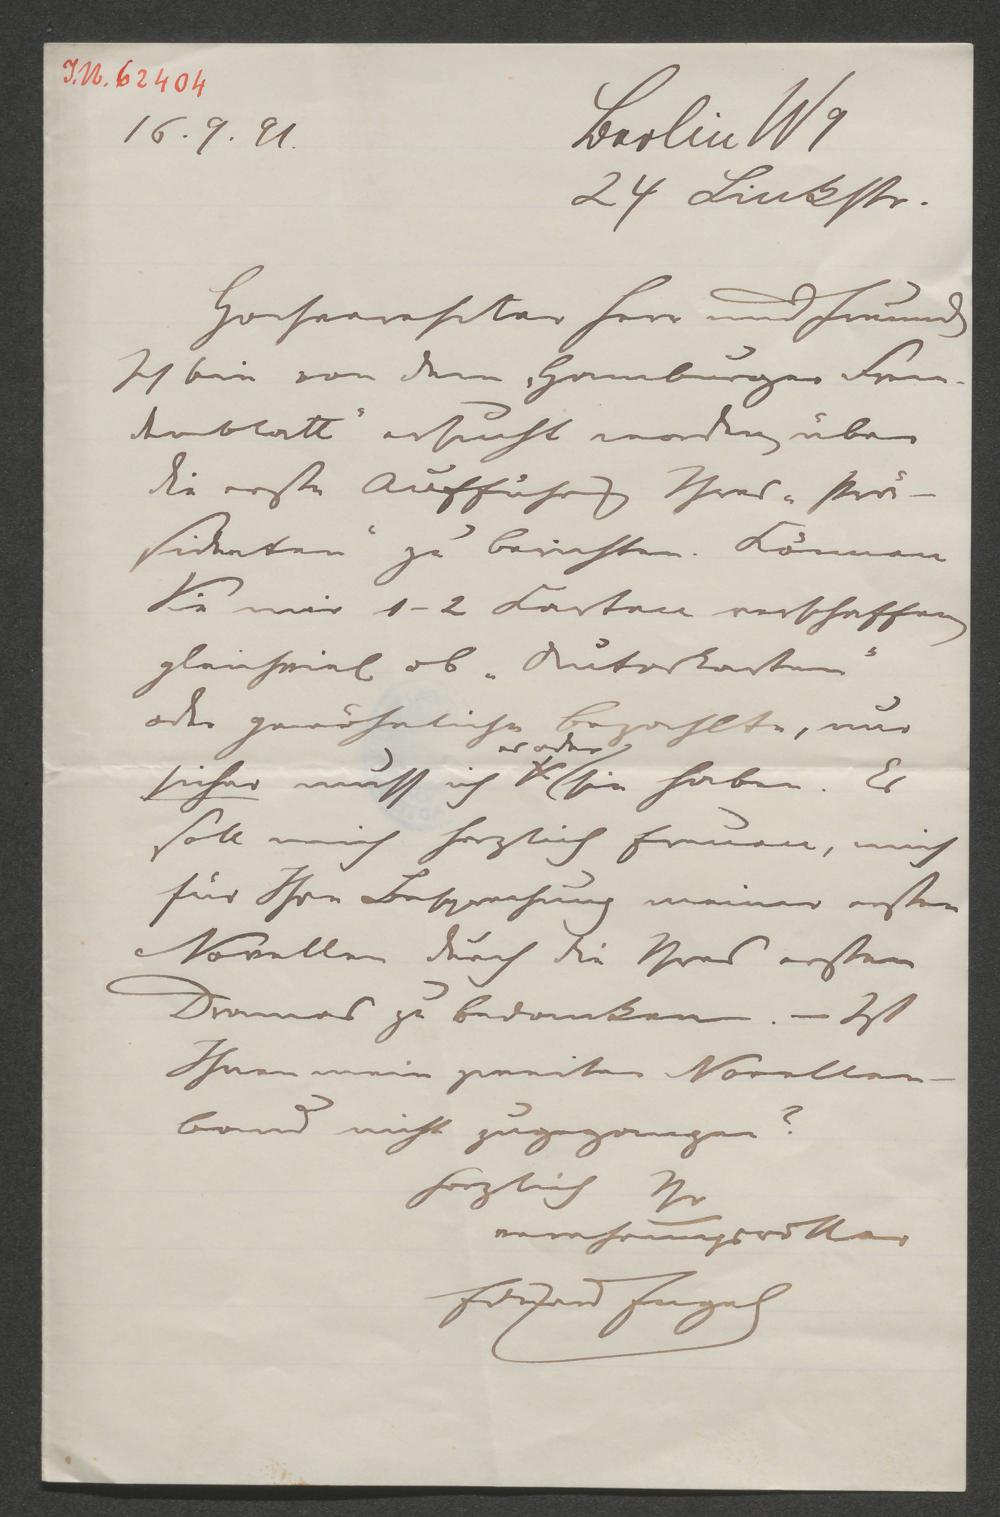 J.N. 62404
16.9.91.
Berlin W 9
24 Linkstr.
Hochverehrter Herr und Freund,
Ich bin von dem „Hamburger Frem-
denblatt“ ersucht worden, über
die erste Aufführung Ihres „Prä-
sidenten“ zu berichten. Können
Sie mir 1-2 Karten verschaffen,
gleichviel ob „Autorkarten“
oder gewöhnliche bezahlte, nur
er oder
sicher muss ich sie haben. Es
soll mich herzlich freuen, mich
für Ihre Besprechung meiner ersten
Novellen durch die Ihres ersten
Dramas zu bedanken. – Ist
Ihnen mein zweiter Novellen-
band nicht zugegangen?
Herzlich Ihr
verehrungsvoller
Eduard Engel